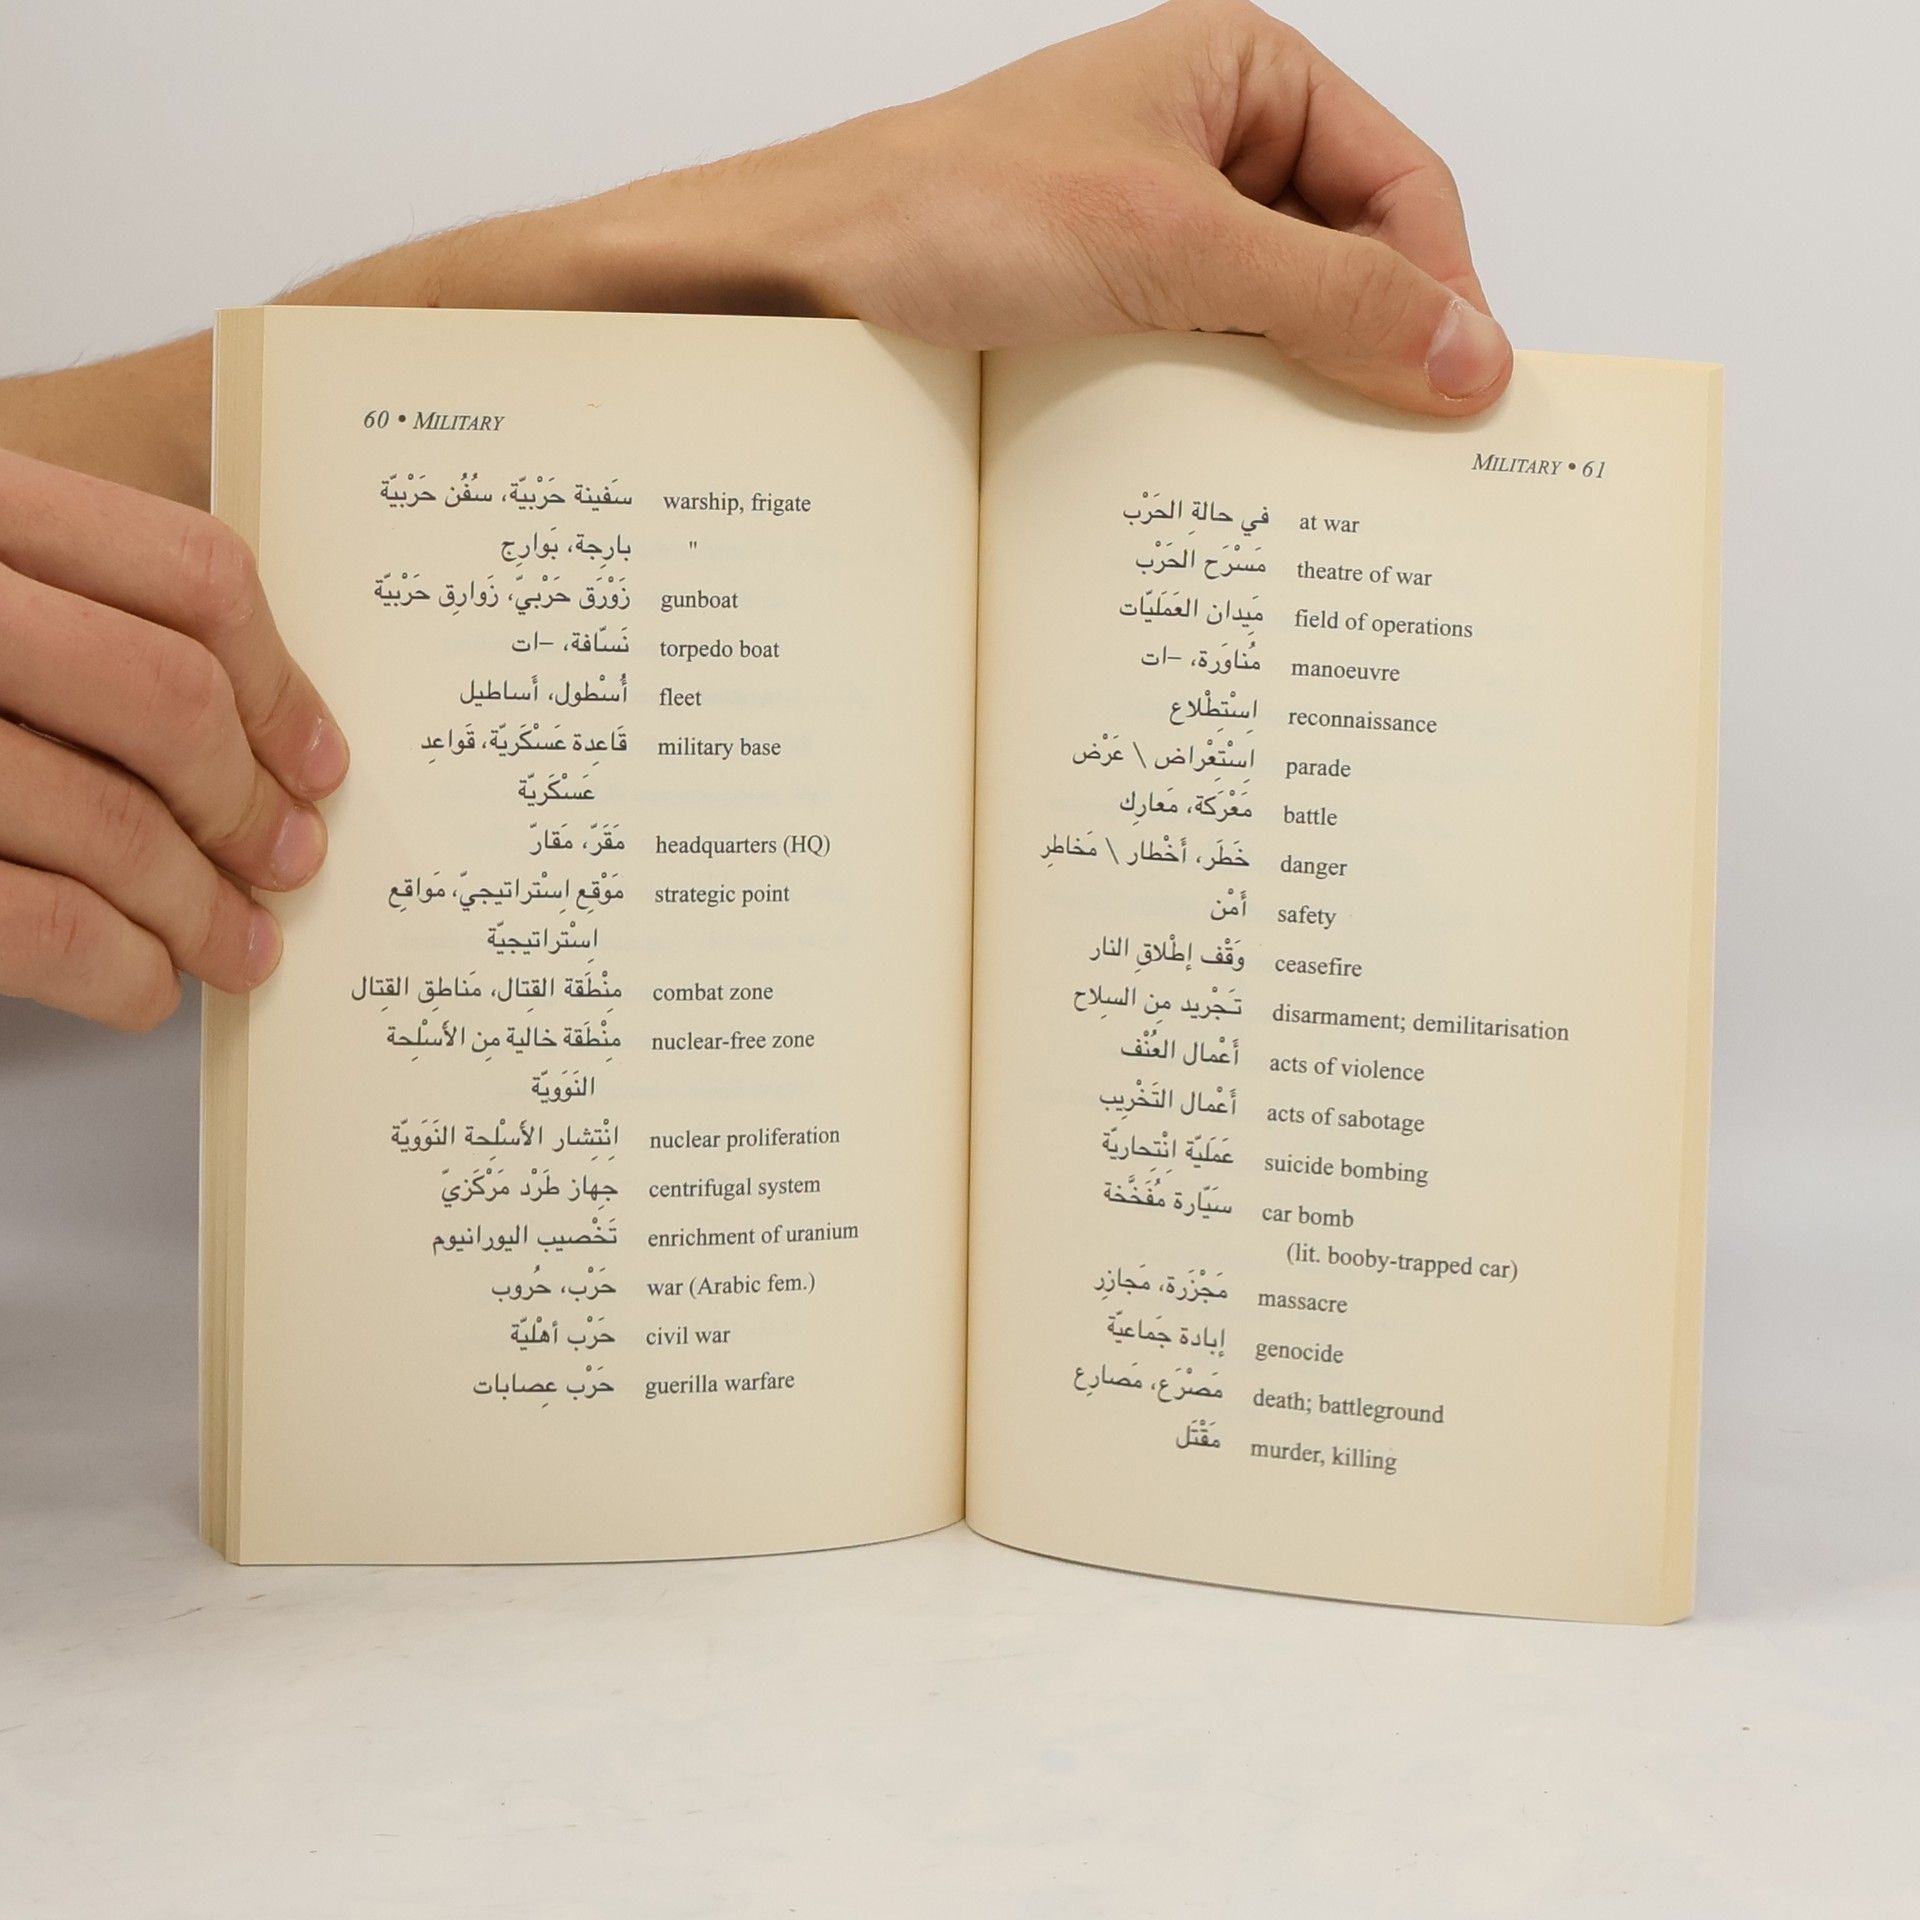 60 • MILITARY
سَفينة حَرْبيّة، سُفُن حَرْبيّة warship, frigate
بارِجة، بَوارِج "
زَوْرَق حَرْبيّ، زَوارِق حَرْبيّة gunboat
نَسّافة، –ات torpedo boat
أُسْطول، أَساطيل fleet
قَاعِدة عَسْكَريّة، قَواعِد military base
عَسْكَريّة
مَقَرّ، مَقارّ headquarters (HQ)
مَوْقِع اِسْتراتيجيّ، مَواقِع strategic point
اِسْتراتيجيّة
مِنْطَقة القِتال، مَناطِق القِتال combat zone
مِنْطَقة خالية مِن الأَسْلِحة nuclear-free zone
النَوَويّة
اِنْتِشار الأَسْلِحة النَوَويّة nuclear proliferation
جِهاز طَرْد مَرْكَزيّ centrifugal system
تَخْصيب اليورانيوم enrichment of uranium
حَرْب، حُروب war (Arabic fem.)
حَرْب أهْليّة civil war
حَرْب عِصابات guerilla warfare
MILITARY • 61
في حالةِ الحَرْب at war
مَسْرَح الحَرْب theatre of war
مَيدان العَمَليّات field of operations
مُناوَرة، –ات manoeuvre
اِسْتِطْلاع reconnaissance
اِسْتِعْراض \ عَرْض parade
مَعْرَكة، مَعارِك battle
خَطَر، أَخْطار \ مَخاطِر danger
أَمْن safety
وَقْف إطْلاقِ النار ceasefire
تَجْريد مِن السِلاح disarmament; demilitarisation
أَعْمال العُنْف acts of violence
أَعْمال التَخْريب acts of sabotage
عَمَليّة اِنْتِحاريّة suicide bombing
سَيّارة مُفَخَّخة car bomb
(lit. booby-trapped car)
مَجْزَرة، مَجازِر massacre
إبادة جَماعيّة genocide
مَصْرَع، مَصارِع death; battleground
مَقْتَل murder, killing